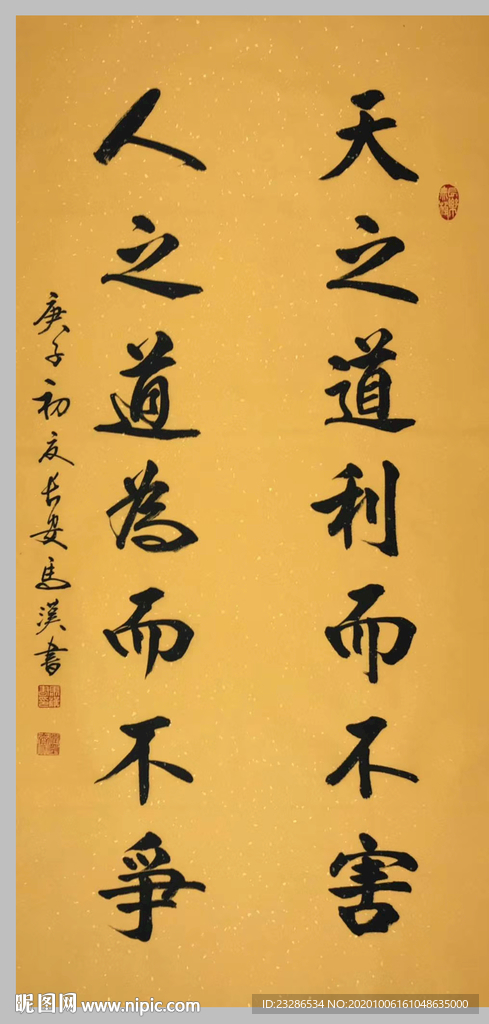 天之道利而不害
人之道為而不爭
庚子初夏長安馬書
昵图网 www.nipic.com
ID:23286534 NO:20201006161048635000